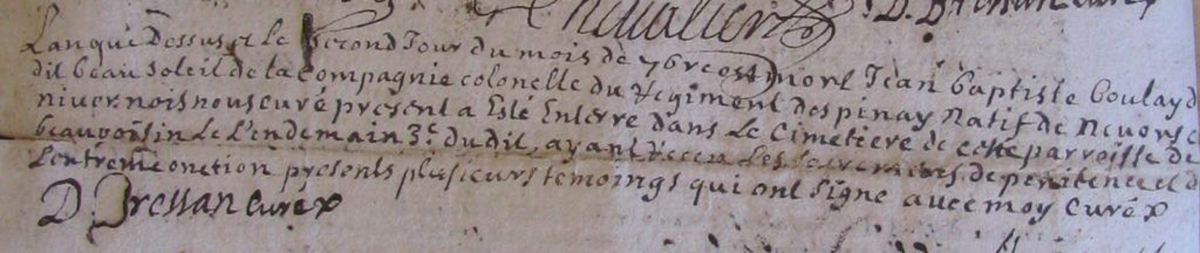 Chevalier D. Dressan curé
Lan que Dessus et Le second Jour du mois de 7bre est mort Jean baptiste boulay d
dit beau soleil de la compagnie colonelle du Regiment despinay Natif de Nevers e
nivernois nous curé present a Esté Enterre dans Le Cimetiere de cette parroisse de
beauvoisin Le Lendemain 3e dudit, ayant Receu Les sacremens de penitence et d
Lentreme onction presents plusieurs temoings qui ont signe avec moy curé
D. Dressan curé